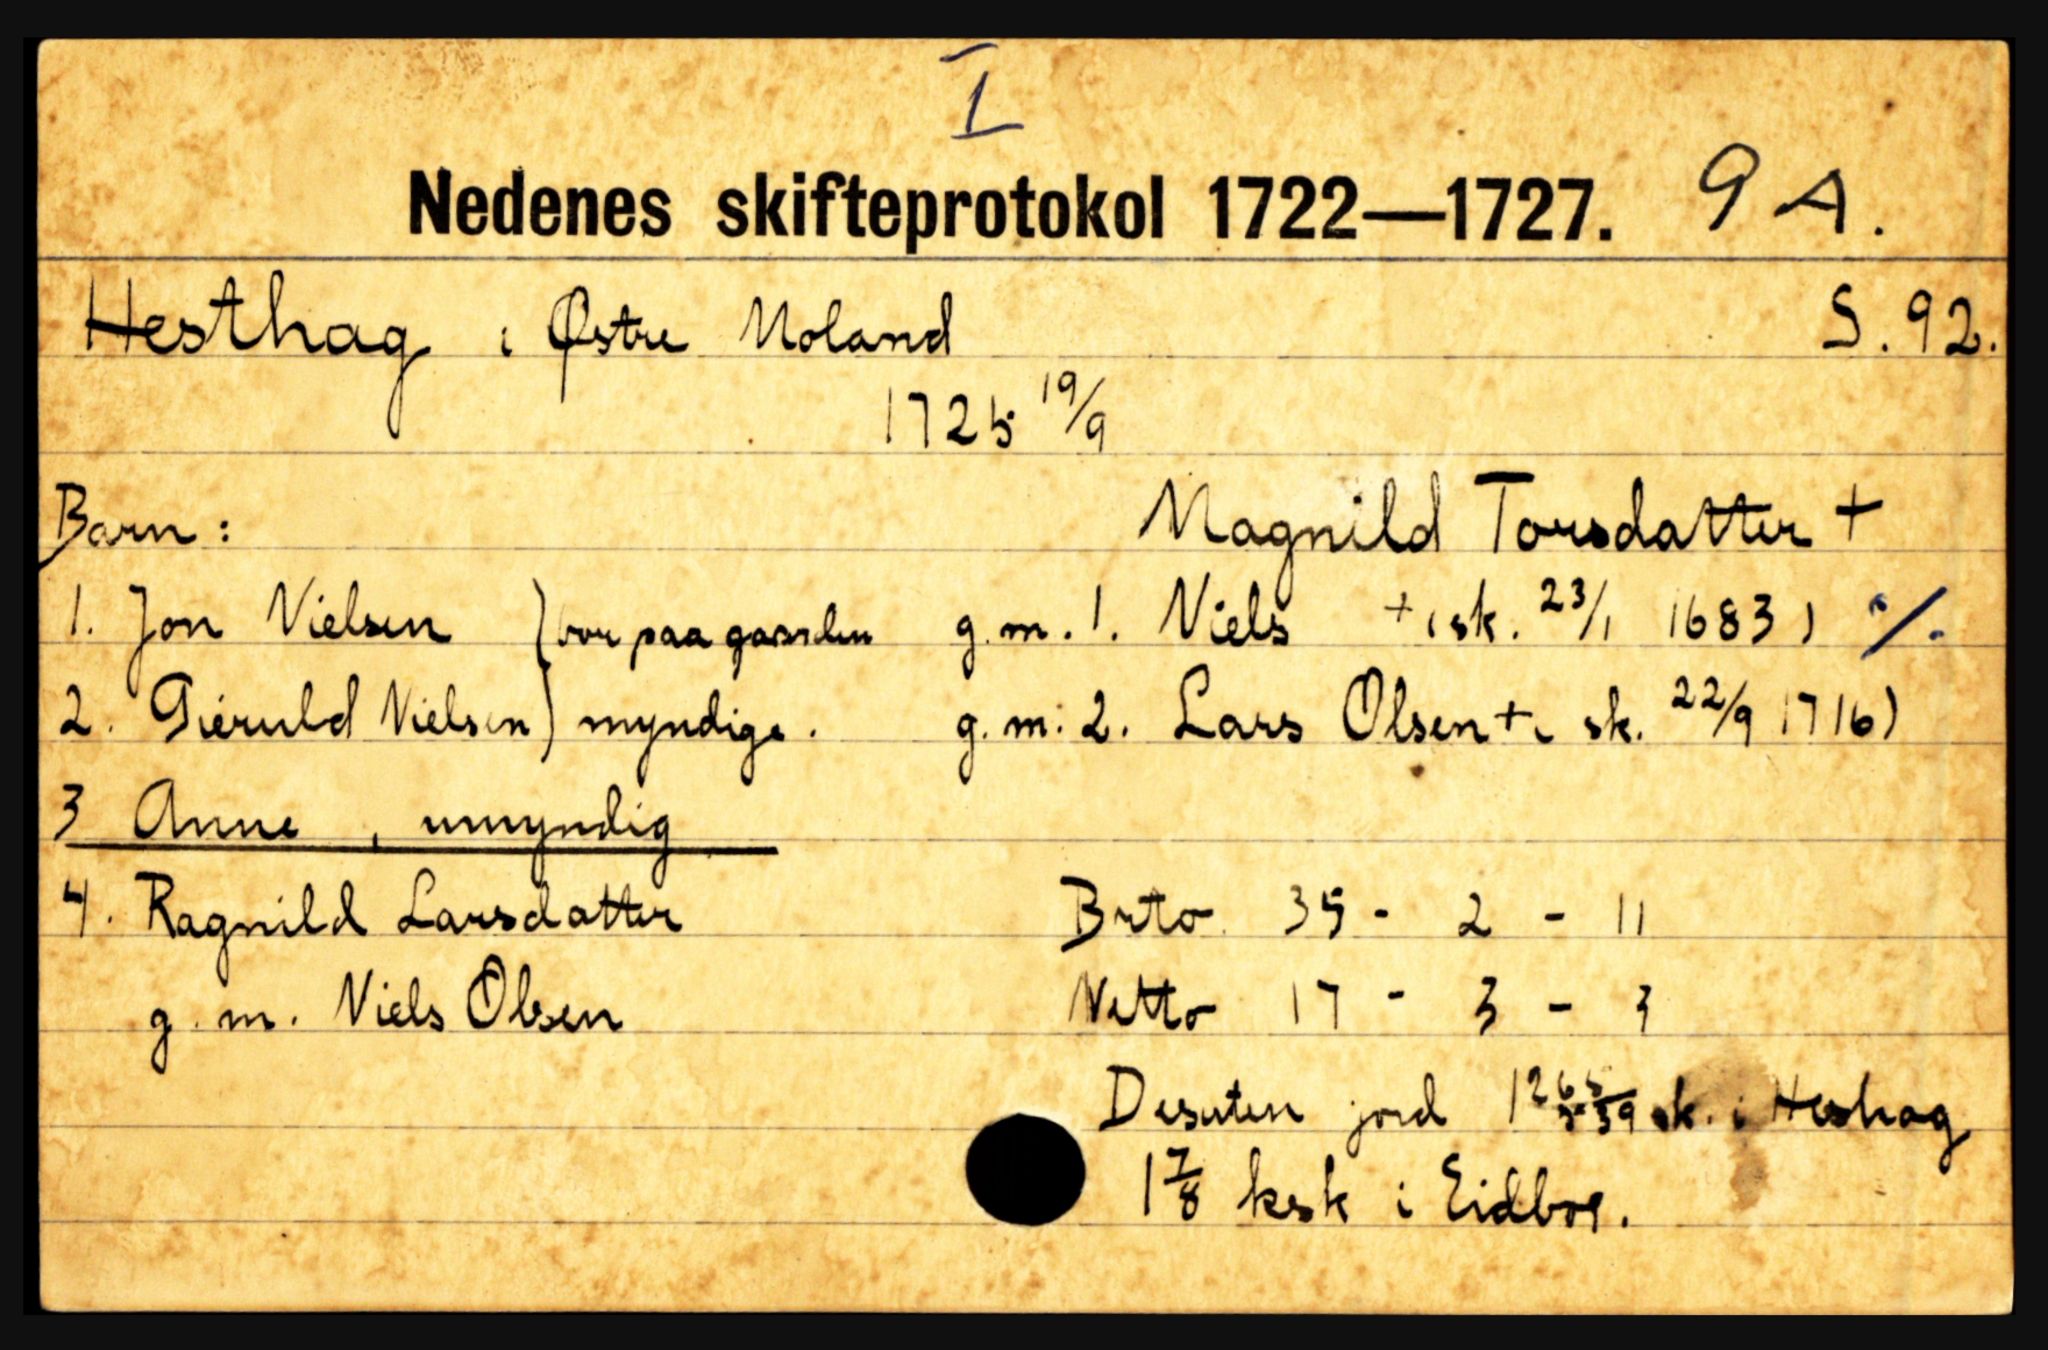 I
Nedenes skifteprotokol 1722—1727. 9 A.
Hesthag i Østre Moland S. 92.
1725 19/9
Barn: Magnild Torsdatter +
1. Jon Nielsen ) bor paa gaarden g. m. 1. Niels + (sk. 23/1 1683) ·/.
2. Gieruld Nielsen ) myndige. g. m. 2. Lars Olsen + ( sk. 22/9 1716)
3 Anne , umyndig
4. Ragnild Larsdatter Brto 35 - 2 - 11
g. m. Niels Olsen Netto 17 - 3 - 3
Desuten jord sk. i Heshag
1 7/8 ksk i Eidbo.